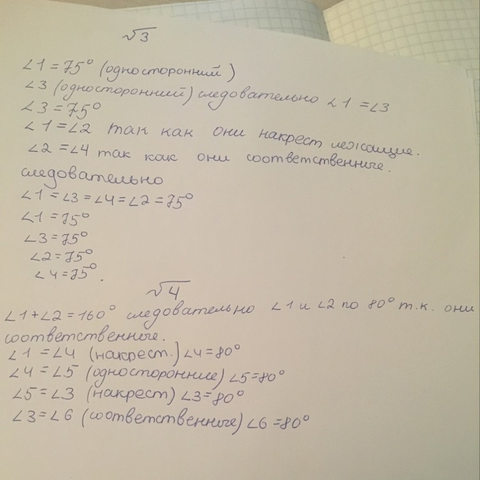 √3
∠1=75° (односторонний)
∠3 (односторонний) следовательно ∠1=∠3
∠3=75°
∠1=∠2 так как они накрест лежащие.
∠2=∠4 так как они соответственные.
следовательно
∠1=∠3=∠4=∠2=75°
∠1=75°
∠3=75°
∠2=75°
∠4=75°.
√4
∠1+∠2=160° следовательно ∠1 и ∠2 по 80° т.к. они
соответственные.
∠1=∠4 (накрест.) ∠4=80°
∠4=∠5 (односторонние) ∠5=80°
∠5=∠3 (накрест) ∠3=80°
∠3=∠6 (соответственные) ∠6=80°